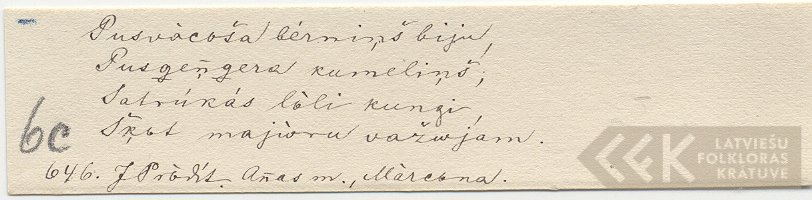 Pusvàcoša bérniņš biju,
Pusgeņgera kumeliņš;
Satrúkás lòli kungi,
Šķot majìoru važwjam.
6c
646. J Pròdit. Añas m., Màrcona.
LATVIEŠU
FOLKLORAS
KRĀTUVE